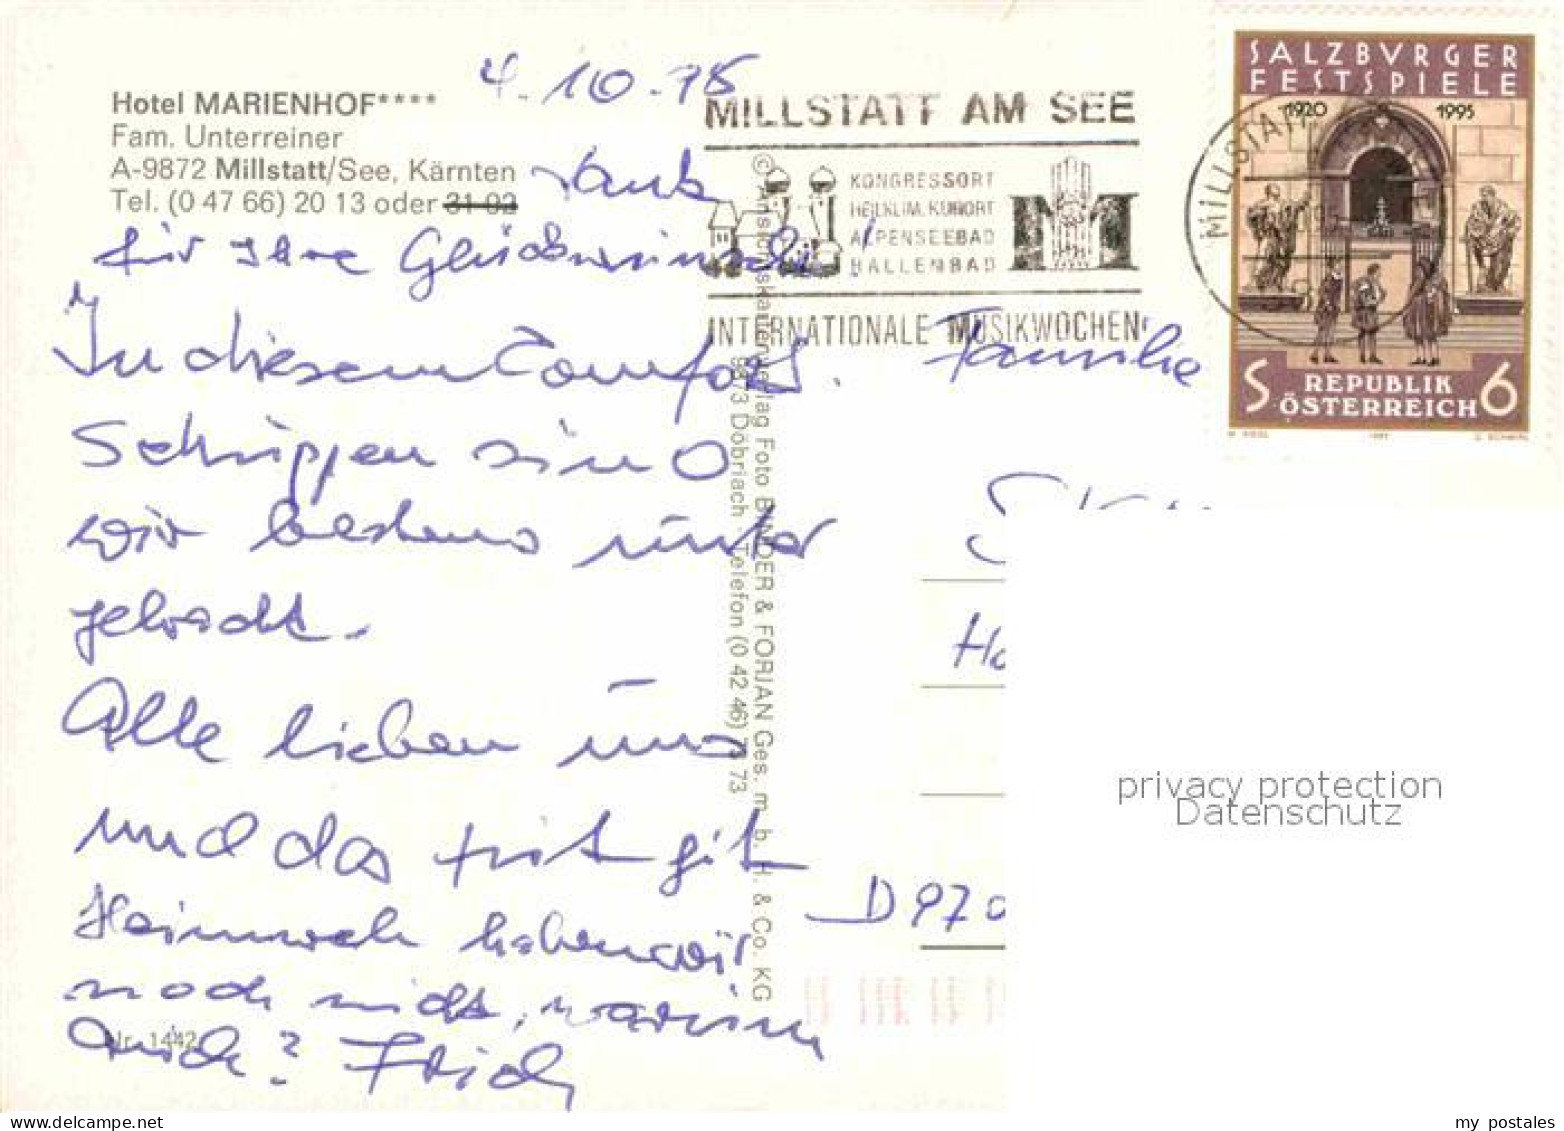 Hotel MARIENHOF****
Fam. Unterreiner
A-9872 Millstatt/See, Kärnten
Tel. (0 47 66) 20 13 oder 31 02
4.10.95
Dank
für Ihre Glückwünsche!
In diesem Comfort.
Schuppen sind
wir bestens unter
gebracht.
Alle lieben uns
und das tut gut
Heimweh haben wir
noch nicht, warum
auch? Erich
Nr. 1442
© Ansichtskartenverlag Foto BINDER & FORJAN Ges. m. b. H. & Co. KG
9873 Döbriach · Telefon (0 42 46) 73 73
MILLSTATT AM SEE
KONGRESSORT
HEILKLIM. KURORT
ALPENSEEBAD
HALLENBAD
M
INTERNATIONALE MUSIKWOCHEN
MILLSTATT
SALZBVRGER
FESTSPIELE
1920 1995
REPUBLIK
S ÖSTERREICH 6
Familie
D 970
privacy protection
Datenschutz
my postales